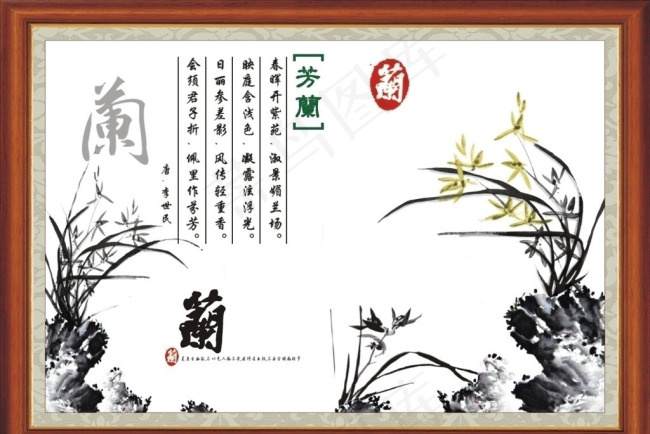 [芳蘭]
春晖开紫苑，淑景媚兰场。
映庭含浅色，凝露泫浮光。
日丽参差影，风传轻重香。
会须君子折，佩里作芬芳。
唐·李世民
蘭
蘭
蘭
蘭